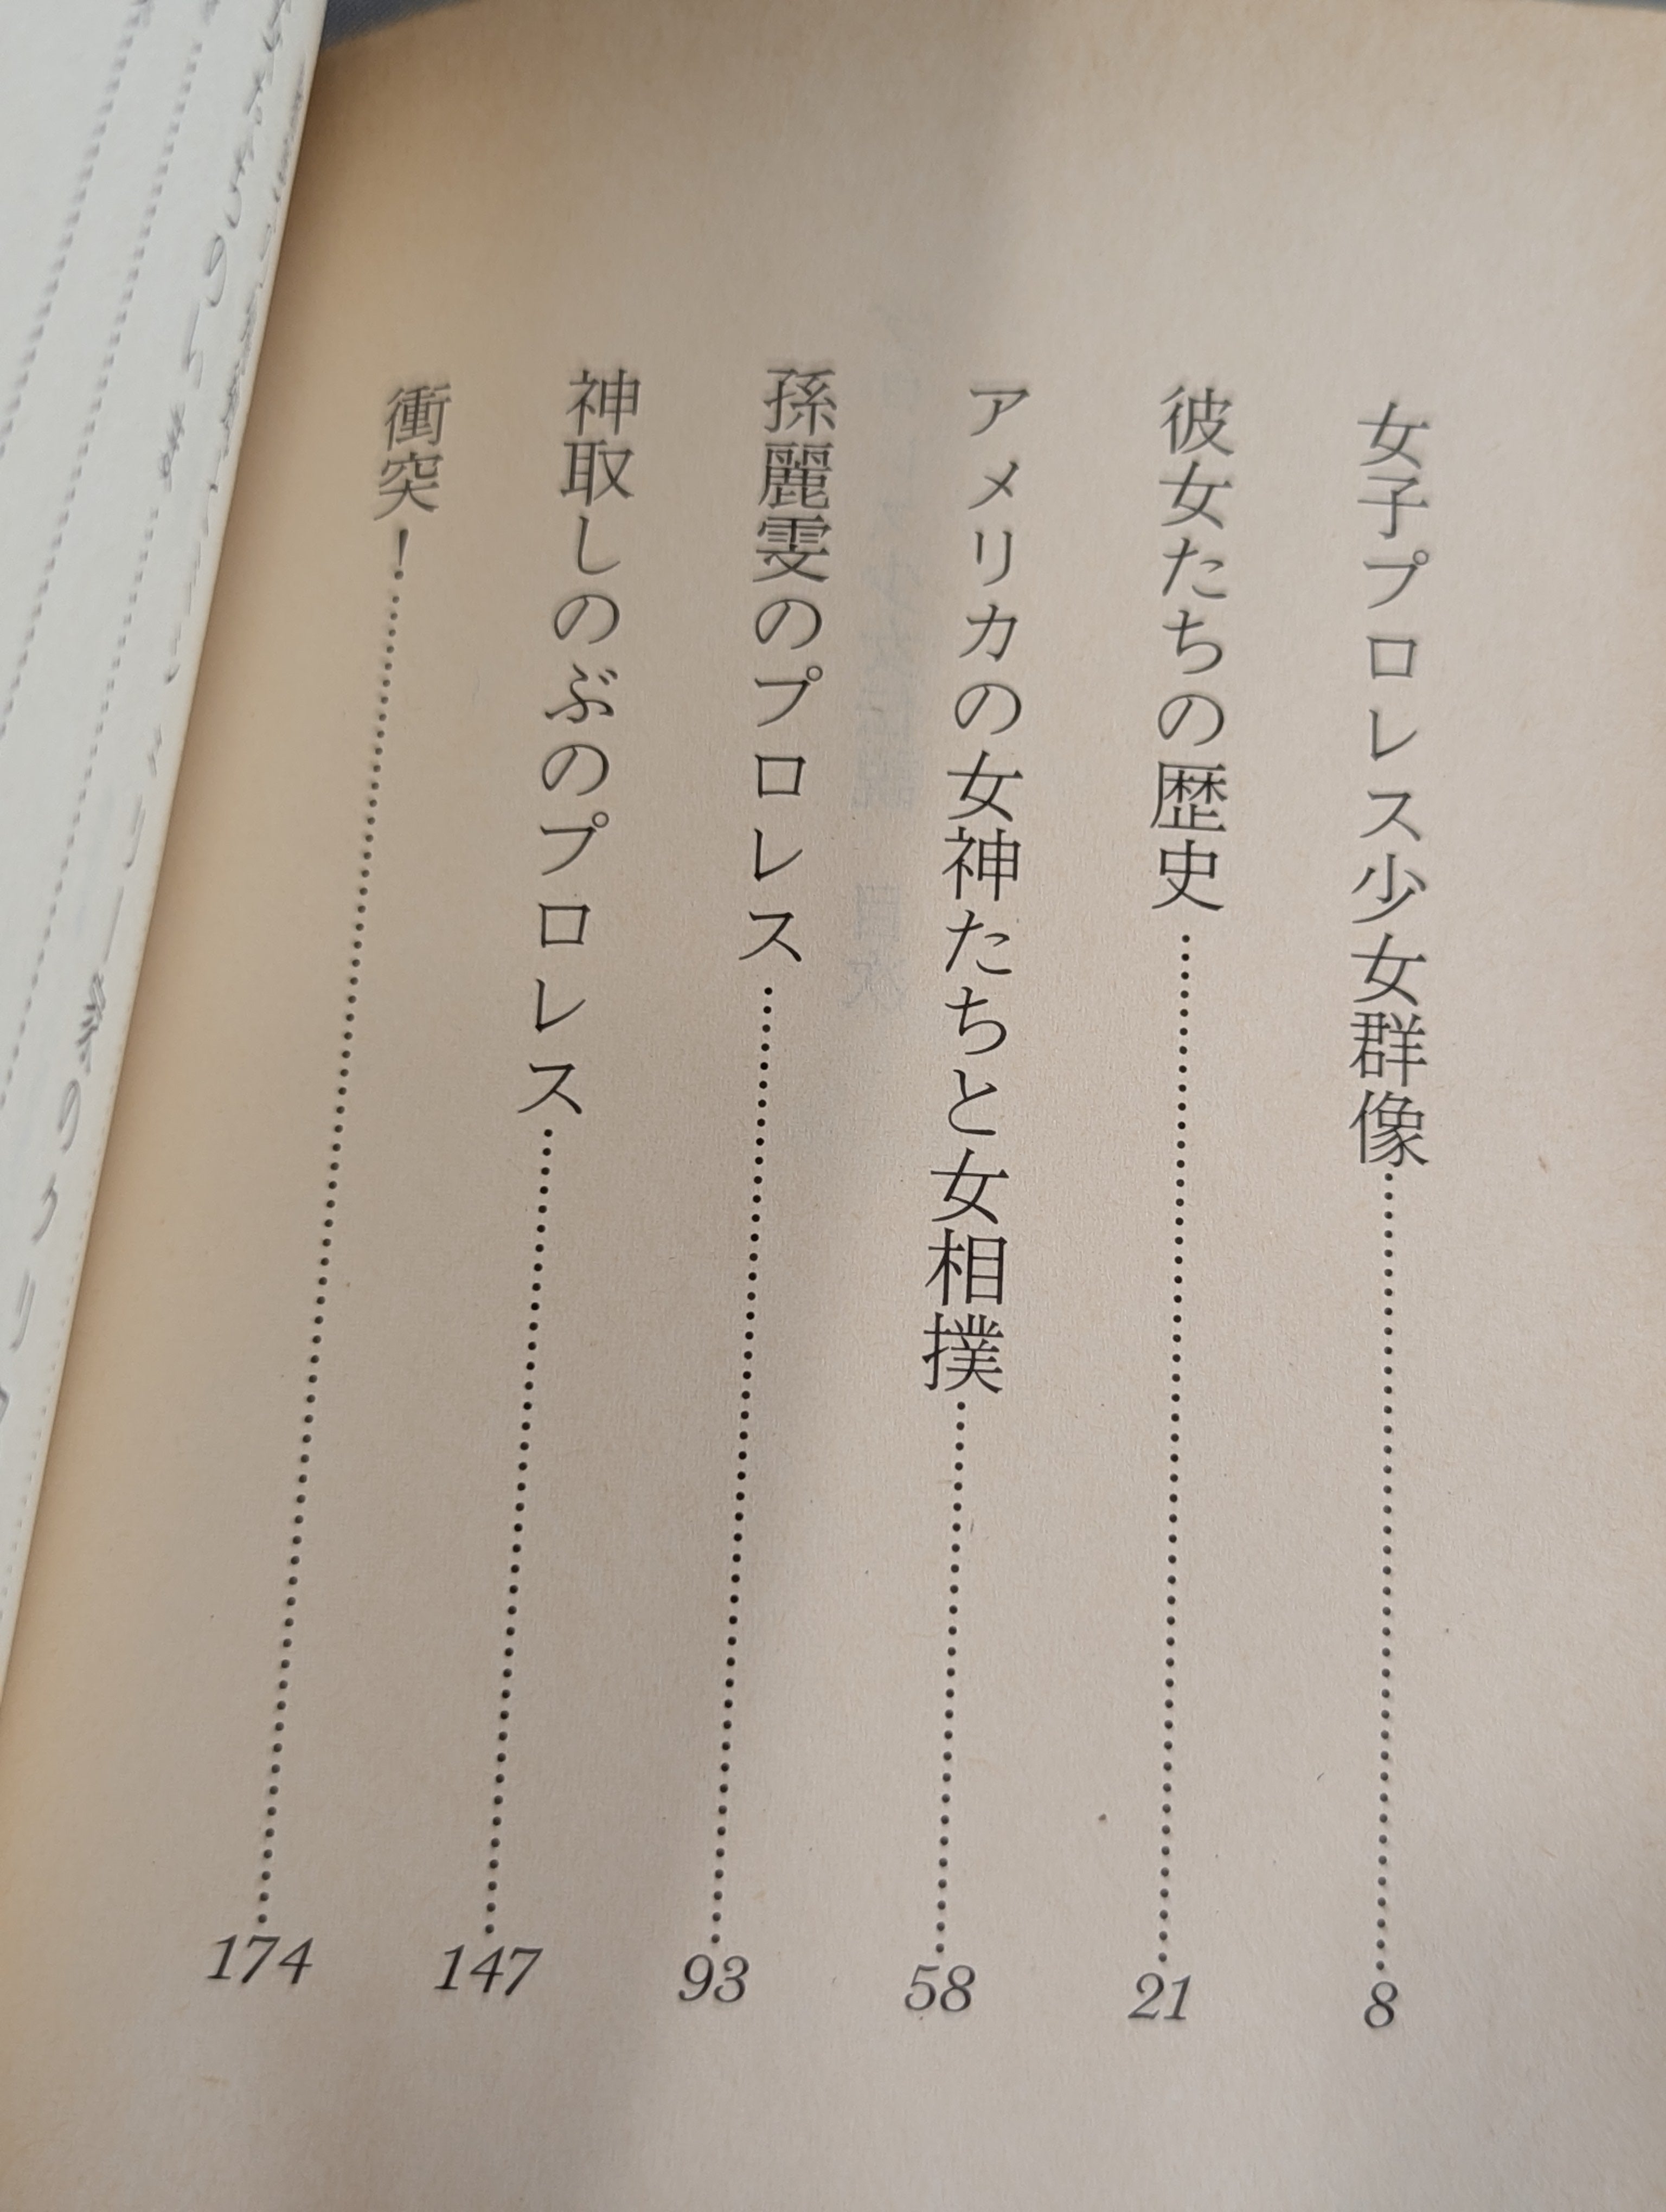 女子プロレス少女群像……8
彼女たちの歴史……21
アメリカの女神たちと女相撲……58
孫麗雯のプロレス……93
神取しのぶのプロレス……147
衝突！……174